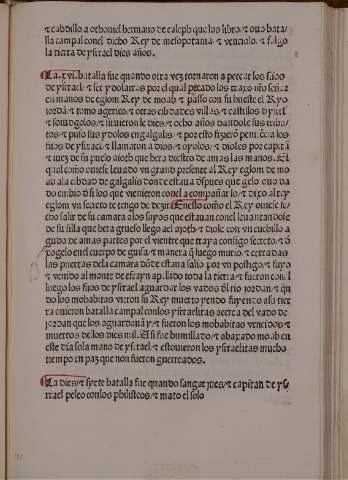 ⁊ cabdillo a othoniel hermano de caleph que los libro: ⁊ ouo bata
lla campal conel dicho Rey de mesopotania: ⁊ venciolo: ⁊ folgo
la tierra de ysrael dies años.
La .xvi. batalla fue quando otra vez tornaron a peccar los fijos
de ysrael: ⁊ ser ydolatras por el qual pecado los traxo nr̃o señor
en manos de eglom Rey de moab: ⁊ passo con su hueste el Ryo
iordã: ⁊ tomo agerico: ⁊ otras cibdades villas: ⁊ castillos d ysrl̃
⁊ soiusgolos: ⁊ siruieron le dies: ⁊ ocho años dandole sus tribu
tos: ⁊ puso sus ydolos en galgalis: ⁊ por esto fizierõ penitẽcia los
fijos de ysrael: ⁊ llamaron a dios: ⁊ oyolos: ⁊ dioles por capitã
⁊ iuez de su pueblo aioth que hera diestro de amas las manos. El
qual como ouiese leuado vn grand presente al Rey eglom de mo
ab a la cibdad de galgalis donde estaua dspues que gelo ouo da
do enbio los que vinieron conel a compañar lo: ⁊ dixo al rey
eglom vn secreto te tengo de dezir. En esto como el Rey ouiese fe
cho salir de su camara a los suyos que estauan conel leuantandose
de su silla que hera grueso llego aél ayoth: ⁊ diole con vn cuchillo a
gudo de amas partes por el vientre que traya consigo secreto: ⁊ d
xogelo en el cuerpo de guisa: ⁊ manera q̃ luego murio: ⁊ cerradas
las puertas dela camara dõde estaua salio por vn postigo: ⁊ fuyo
⁊ venido al monte de efrayn apellido toda la tierra: ⁊ fueron con el
luego los fijos de ysrael aguardar los vados dl rio jordan: ⁊ qñ
do los mobabitas vieron su Rey muerto yendo fuyendo a su tier
ra ouieron batalla campal con los ysraelitas acerca del vado de
jordan que los aguardauã y: ⁊ fueron los mobabitas vencidos: ⁊
muertos de los dies mil. E si fue humillado: ⁊ abaxado moab en
este dia so la mano de ysrael: ⁊ estouieron los ysraelitas mucho
tiempo en paz que non fueron guerreados.
La dies: ⁊ syete batalla fue quando sangat jues: ⁊ capitan de ys
rrael peleo con los philisteos: ⁊ mato el solo